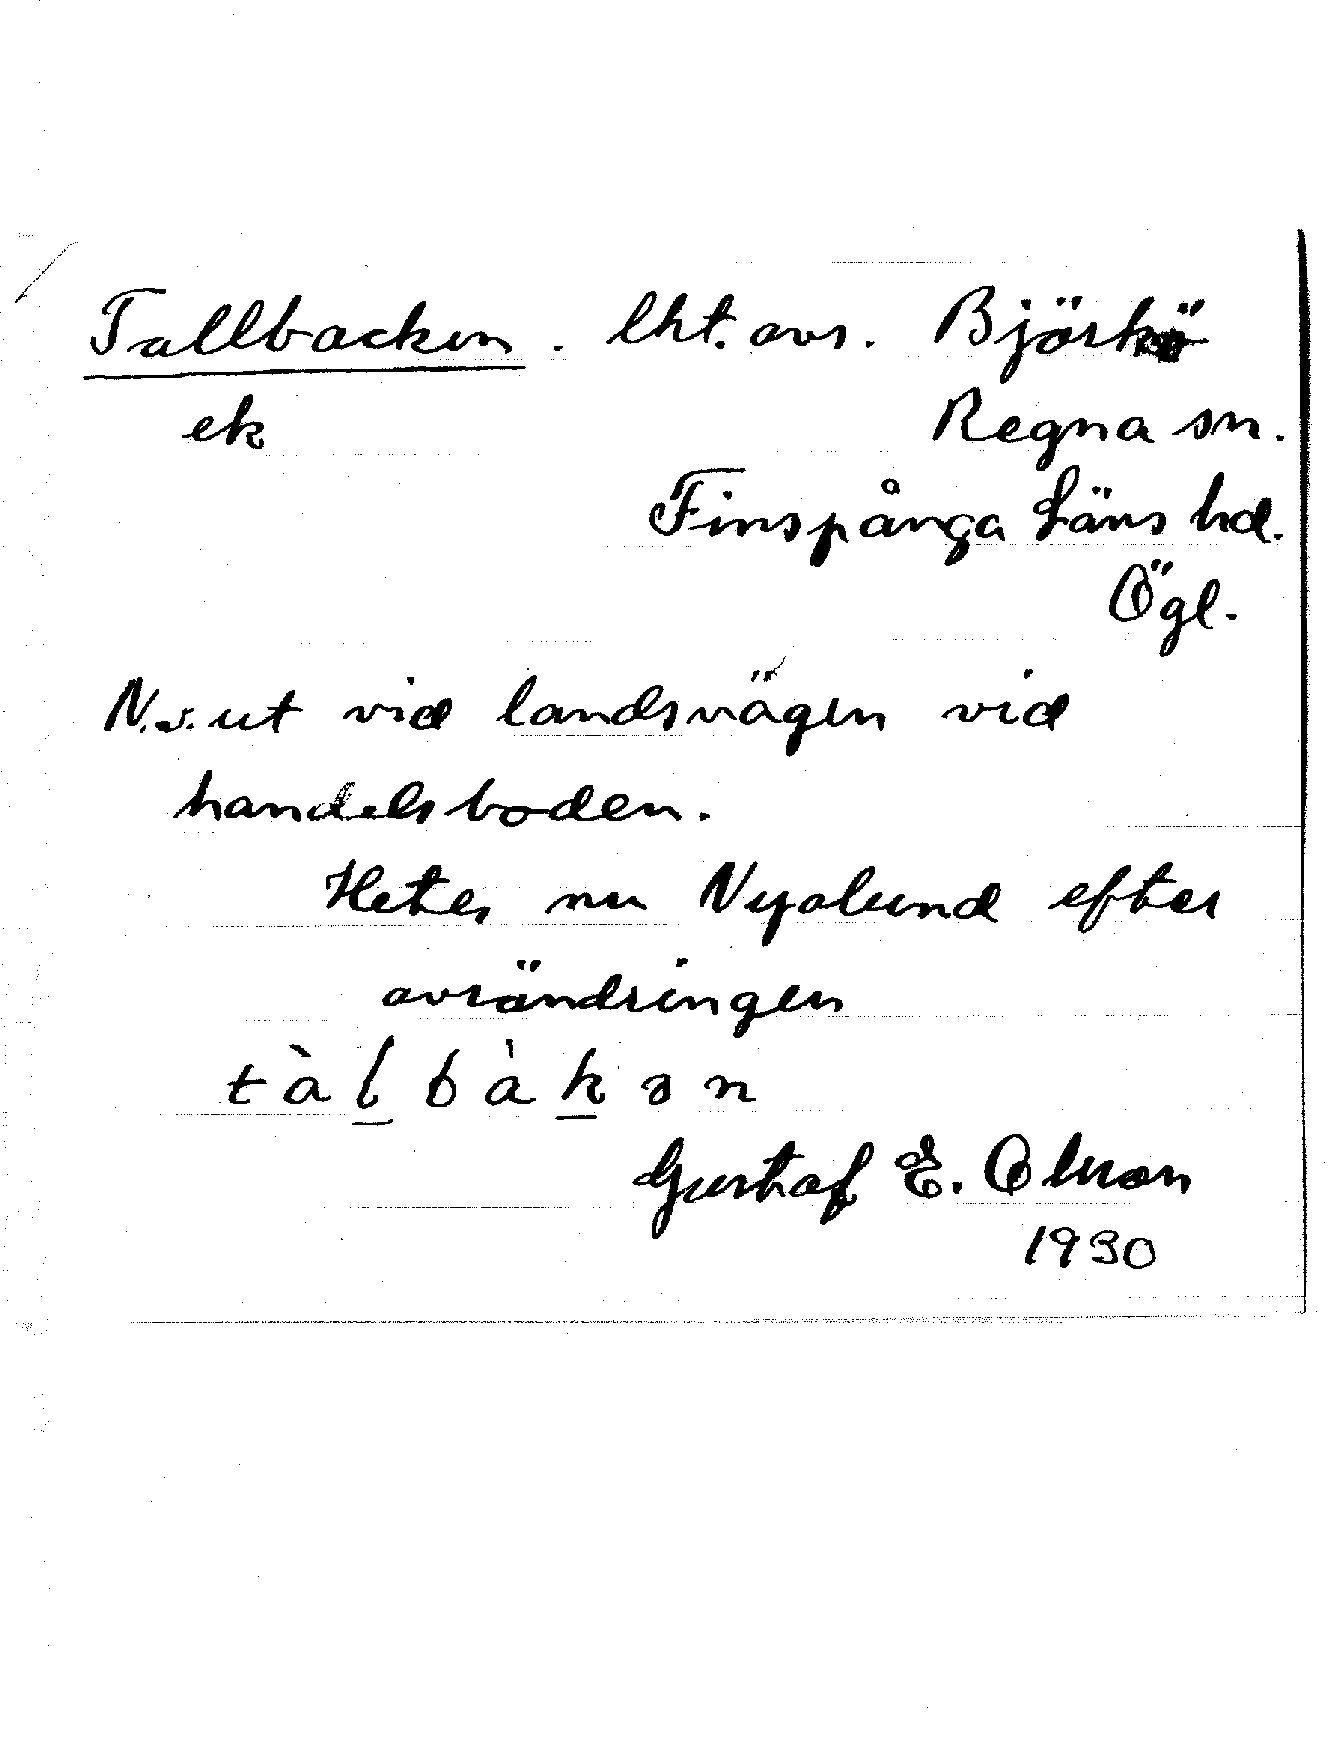 Tallbacken. lht. avs. Björkö
ek Regna sn.
Finspånga Läns hd.
Ögl.
N.v. ut vid landsvägen vid
handelsboden.
Heter nu Nyalund efter
avsöndringen
tàlbàkən
Gustaf E. Olsson
1930